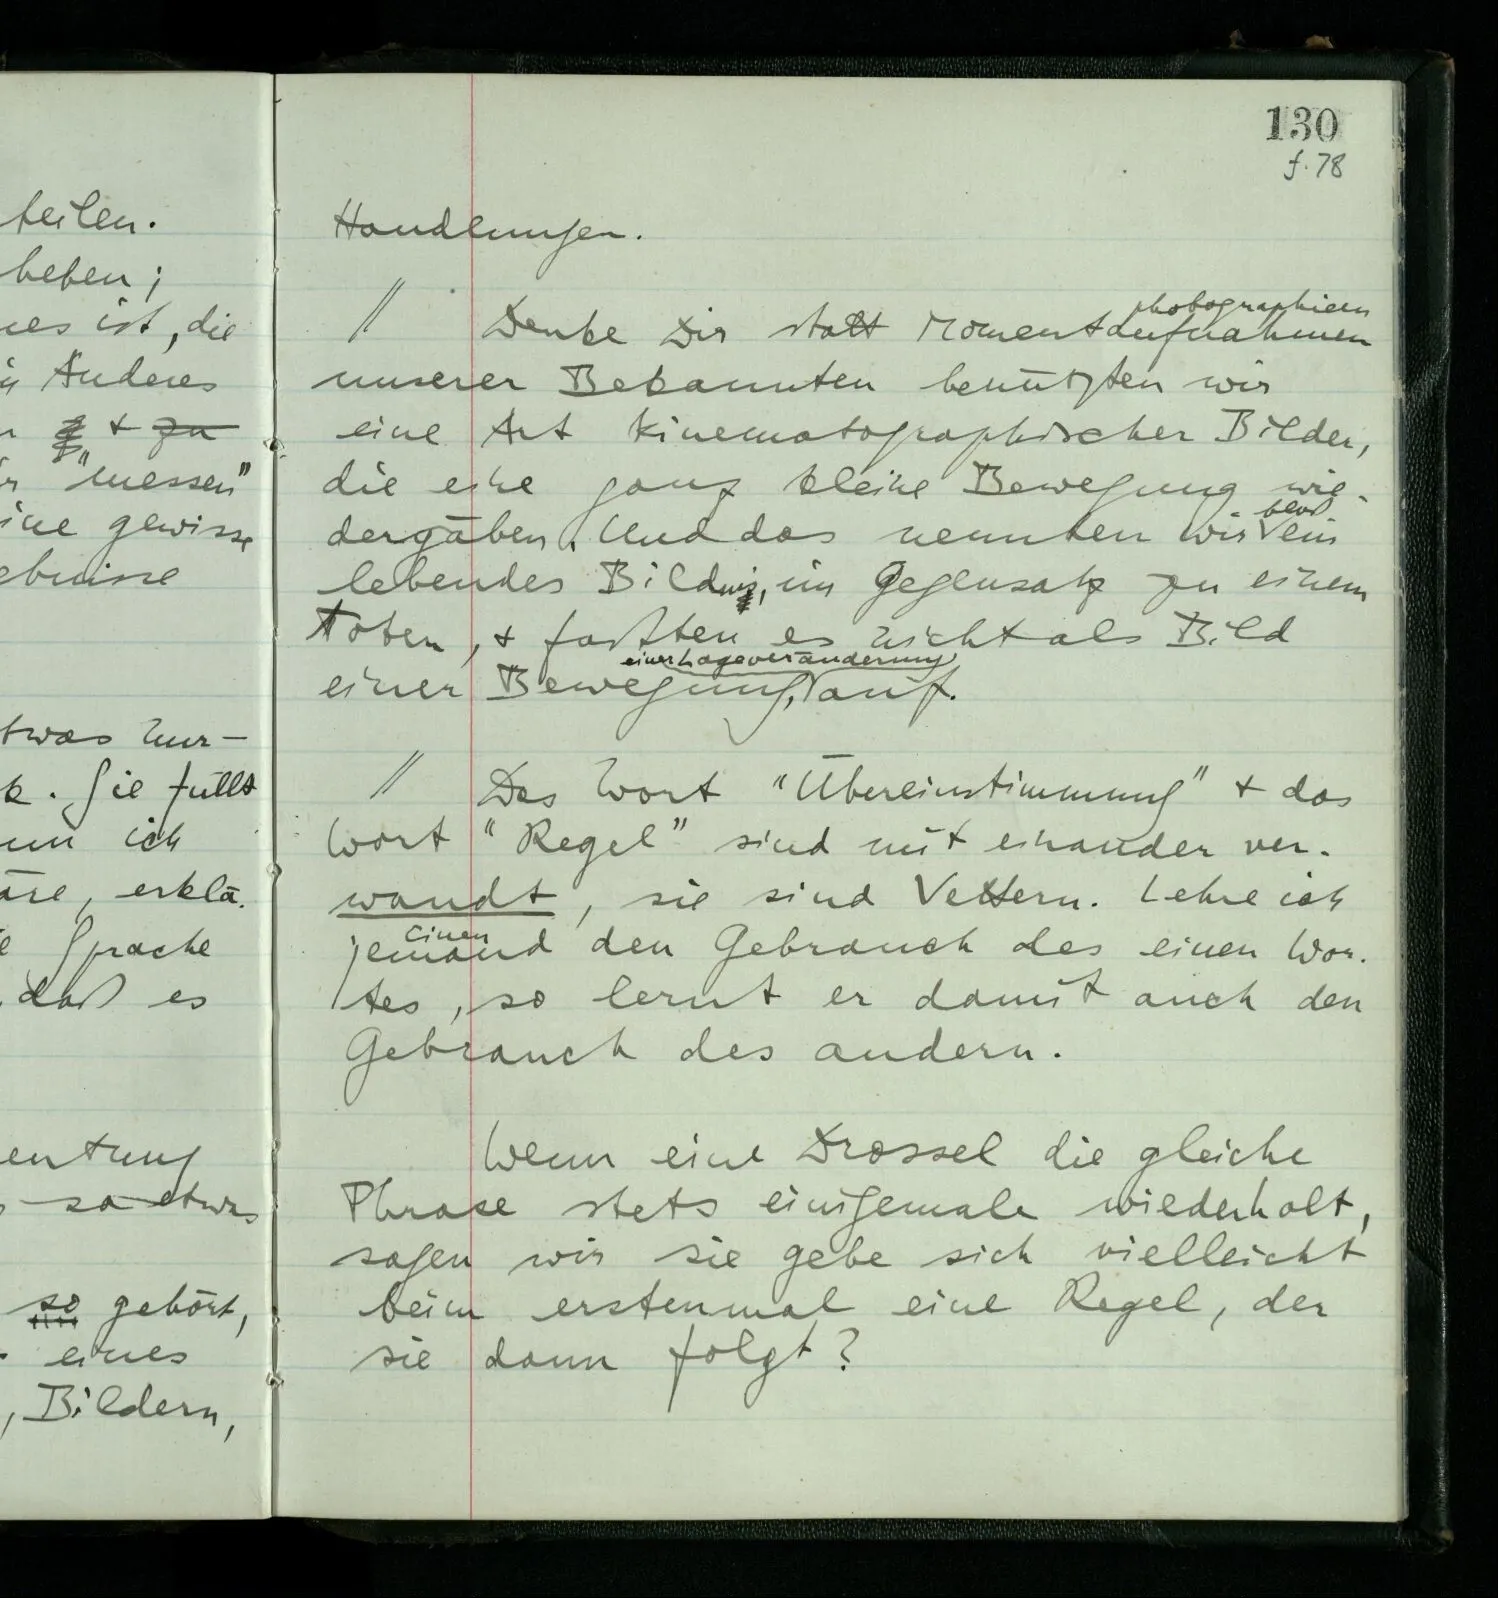 teilen.
heben;
nes ist, die
in Anderes
+ zu
"messen"
ine gewisse
ebnisse
etwas nur-
k. Sie füllt
nn ich
äre, erklä.
Sprache
daß es
eutung
so etwas
so gehört,
eines
, Bildern,
130
f. 78
Handlungen.
photographieen
// Denke Dir statt Momentaufnahmen
unserer Bekannten benützten wir
eine Art kinematographischer Bilder,
die eine ganz kleine Bewegung wie-
bloß
dergäben. Und das nennten wir ein
lebendes Bildnis, im Gegensatz zu einem
Toten, + faßten es nicht als Bild
einer Lageveränderung
einer Bewegung, auf.
// Das Wort "Übereinstimmung" + das
Wort "Regel" sind mit einander ver-
wandt, sie sind Vettern. Lehre ich
Einen
jemand den Gebrauch des einen Wor-
tes, so lernt er damit auch den
Gebrauch des andern.
Wenn eine Drossel die gleiche
Phrase stets einigemale wiederholt,
sagen wir sie gebe sich vielleicht
beim erstenmal eine Regel, der
sie dann folgt?